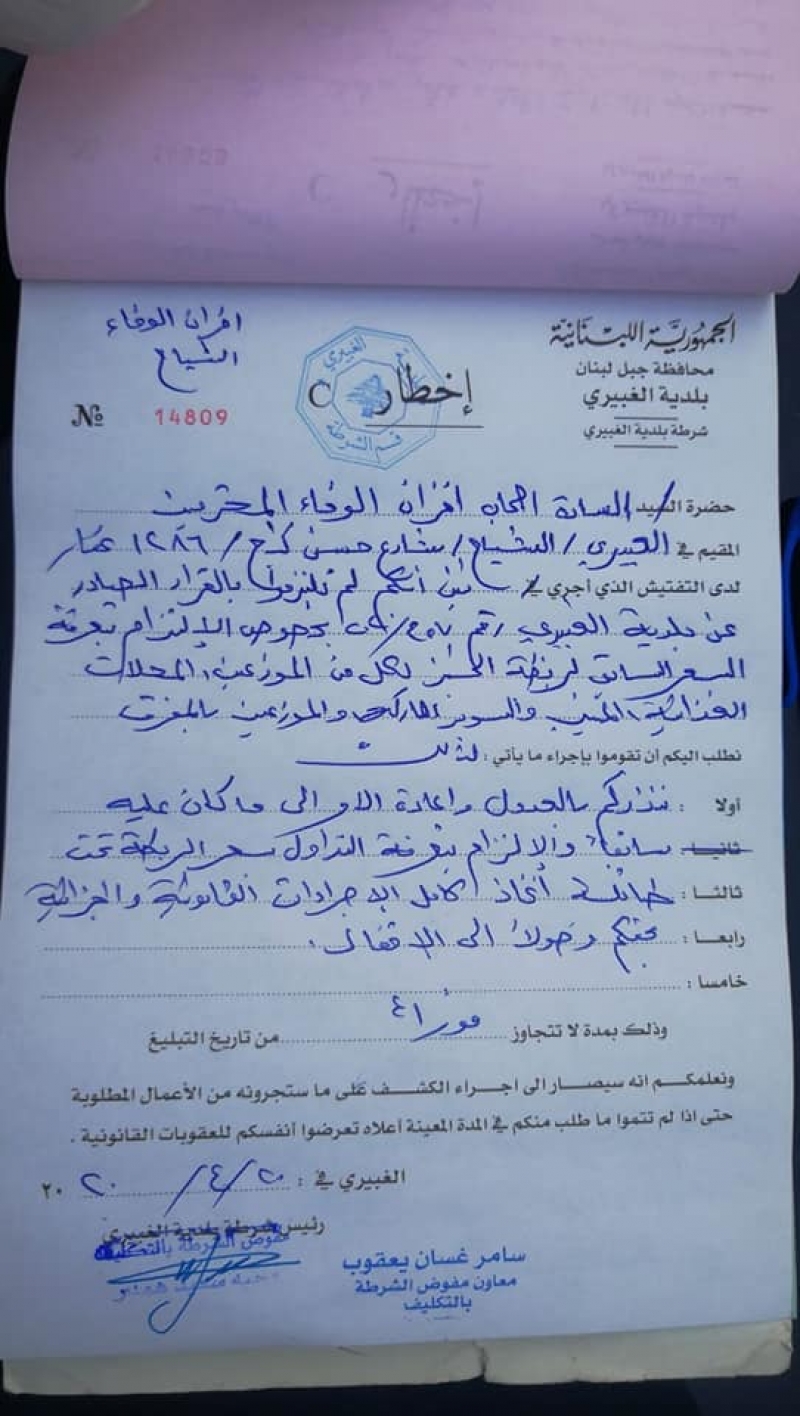 الجمهورية اللبنانية
محافظة جبل لبنان
بلدية الغبيري
شرطة بلدية الغبيري
إخطار
الغبيري
قسم الشرطة
افران الوفاء
الشياح
№ 14809
حضرة السيد/ السادة اصحاب افران الوفاء المحترمين
المقيم في الغبيري / الشياح / شارع حسن كزاح / ١٢٨٦ عقار
لدى التفتيش الذي أجري في / تبين أنكم لم تلتزموا بالقرار الصادر
عن بلدية الغبيري رقم بخصوص الإلتزام بتعرفة
السعر السابق لربطة الخبز لكل من الموزعين، المحلات
الغذائية، الميني والسوبر ماركت والموزعين بالمفرق
نطلب اليكم أن تقوموا بإجراء ما يأتي :
أولا : ننذركم بالعدول واعادة الامر الى ما كان عليه
ثانيا سابقاً والإلتزام بتعرفة التداول سعر الربطة تحت
ثالثا : طائلة أتخاذ كامل الإجراءات القانونية والجزائية
رابعا : بحقكم وصولاً الى الإقفال.
خامسا :
وذلك بمدة لا تتجاوز فوراً من تاريخ التبليغ
ونعلمكم انه سيصار الى اجراء الكشف على ما ستجرونه من الأعمال المطلوبة
حتى اذا لم تتموا ما طلب منكم في المدة المعينة أعلاه تعرضوا أنفسكم للعقوبات القانونية .
الغبيري في : ٢٠ / ٤ / ٢٠ ٢٠
رئيس شرطة بلدية الغبيري
مفوض الشرطة بالتكليف
سامر غسان يعقوب
معاون مفوض الشرطة
بالتكليف